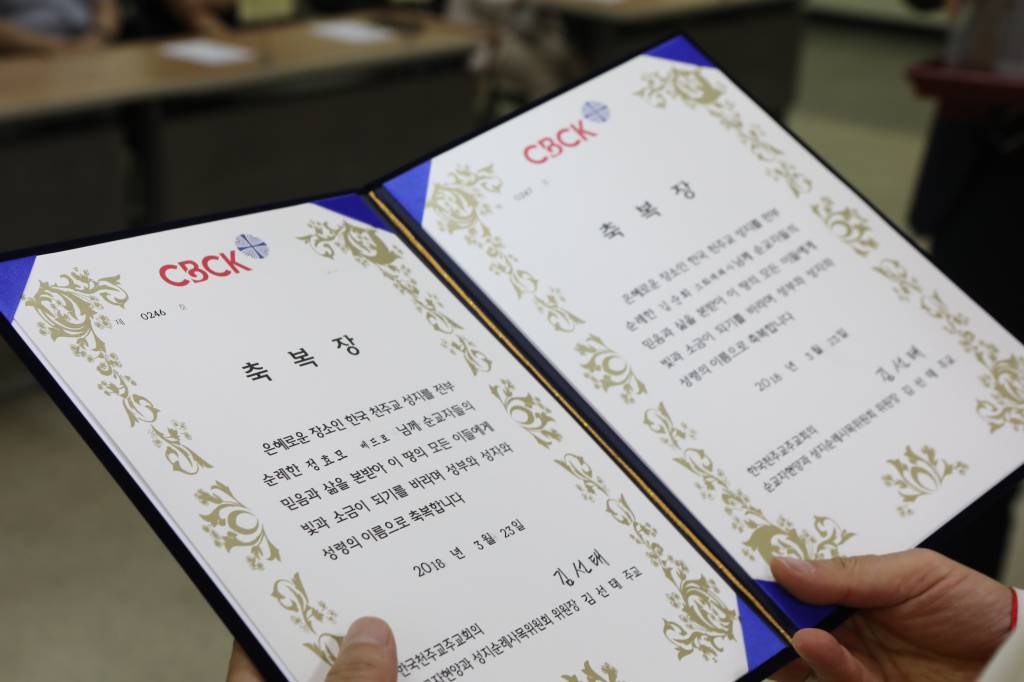 CBCK
제 0246 호
축 복 장
은혜로운 장소인 한국 천주교 성지를 전부
순례한 정효모 베드로 님께 순교자들의
믿음과 삶을 본받아 이 땅의 모든 이들에게
빛과 소금이 되기를 바라며 성부와 성자와
성령의 이름으로 축복합니다
2018 년 3월 23일
한국천주교주교회의 김선태
순교자현양과 성지순례사목위원회 위원장 김 선 태 주교
CBCK
0247 호
축 복 장
은혜로운 장소인 한국 천주교 성지를 전부
순례한 김순희 님께 순교자들의
믿음과 삶을 본받아 이 땅의 모든 이들에게
빛과 소금이 되기를 바라며 성부와 성자와
성령의 이름으로 축복합니다
2018 년 3월 23일
한국천주교주교회의 김선태
순교자현양과 성지순례사목위원회 위원장 김 선 태 주교